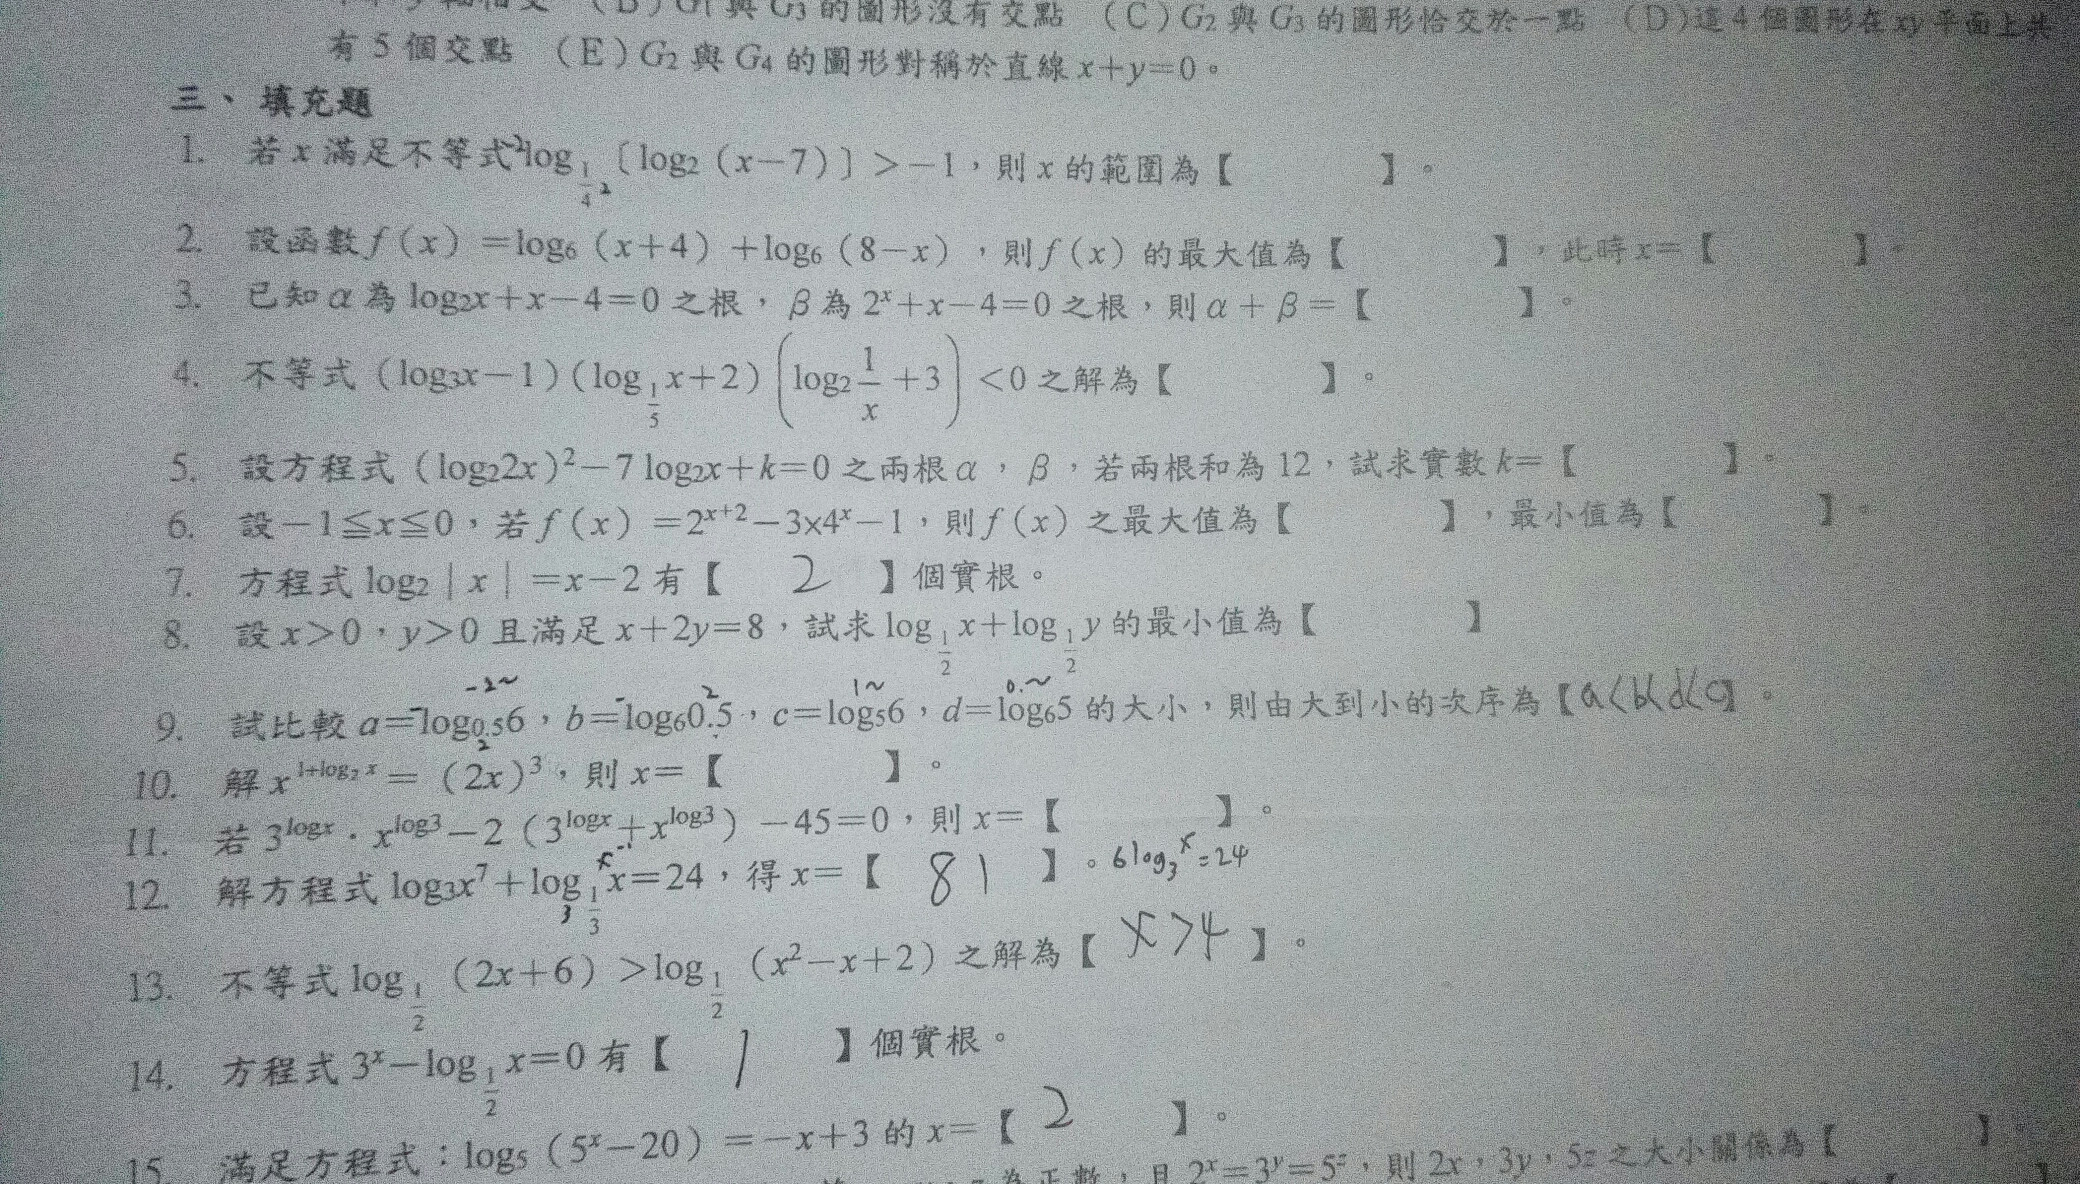 (B) G₁與G₃的圖形沒有交點 (C) G₂與G₃的圖形恰交於一點 (D)這4個圖形在xy平面上共
有5個交點 (E) G₂與G₄的圖形對稱於直線x+y=0。
三、填充題
1. 若x滿足不等式 2 log_{1/4} 2〔log₂(x−7)〕>−1,則x的範圍為【 】。
2. 設函數f(x)=log₆(x+4)+log₆(8−x),則f(x)的最大值為【 】,此時x=【 】
3. 已知α為log₂x+x−4=0之根,β為2ˣ+x−4=0之根,則α+β=【 】。
4. 不等式(log₃x−1)(log_{1/5}x+2)(log₂ 1/x +3)<0之解為【 】。
5. 設方程式(log₂2x)²−7 log₂x+k=0之兩根α,β,若兩根和為12,試求實數k=【 】。
6. 設−1≦x≦0,若f(x)=2^{x+2}−3×4ˣ−1,則f(x)之最大值為【 】,最小值為【 】。
7. 方程式log₂|x|=x−2有【 2 】個實根。
8. 設x>0,y>0且滿足x+2y=8,試求log_{1/2}x+log_{1/2}y的最小值為【 】
-2~ 2 1~ 0.~
9. 試比較a=-log_{0.5}6,b=-log₆0.5,c=log₅6,d=log₆5的大小,則由大到小的次序為【a<b<d<c】。
2
10. 解x^{1+log₂x}=(2x)³,則x=【 】。
11. 若3^{logx}·x^{log3}−2(3^{logx}+x^{log3})−45=0,則x=【 】。
12. 解方程式log₃x⁷+log_{1/3}x=24,得x=【 81 】。6log₃x=24
x⁻¹
3
13. 不等式log_{1/2}(2x+6)>log_{1/2}(x²−x+2)之解為【 x>4 】。
14. 方程式3ˣ−log_{1/2}x=0有【 1 】個實根。
15. 滿足方程式:log₅(5ˣ−20)=−x+3的x=【 2 】。
為正數,且2ˣ=3ʸ=5ᶻ,則2x,3y,5z之大小關係為【 】。